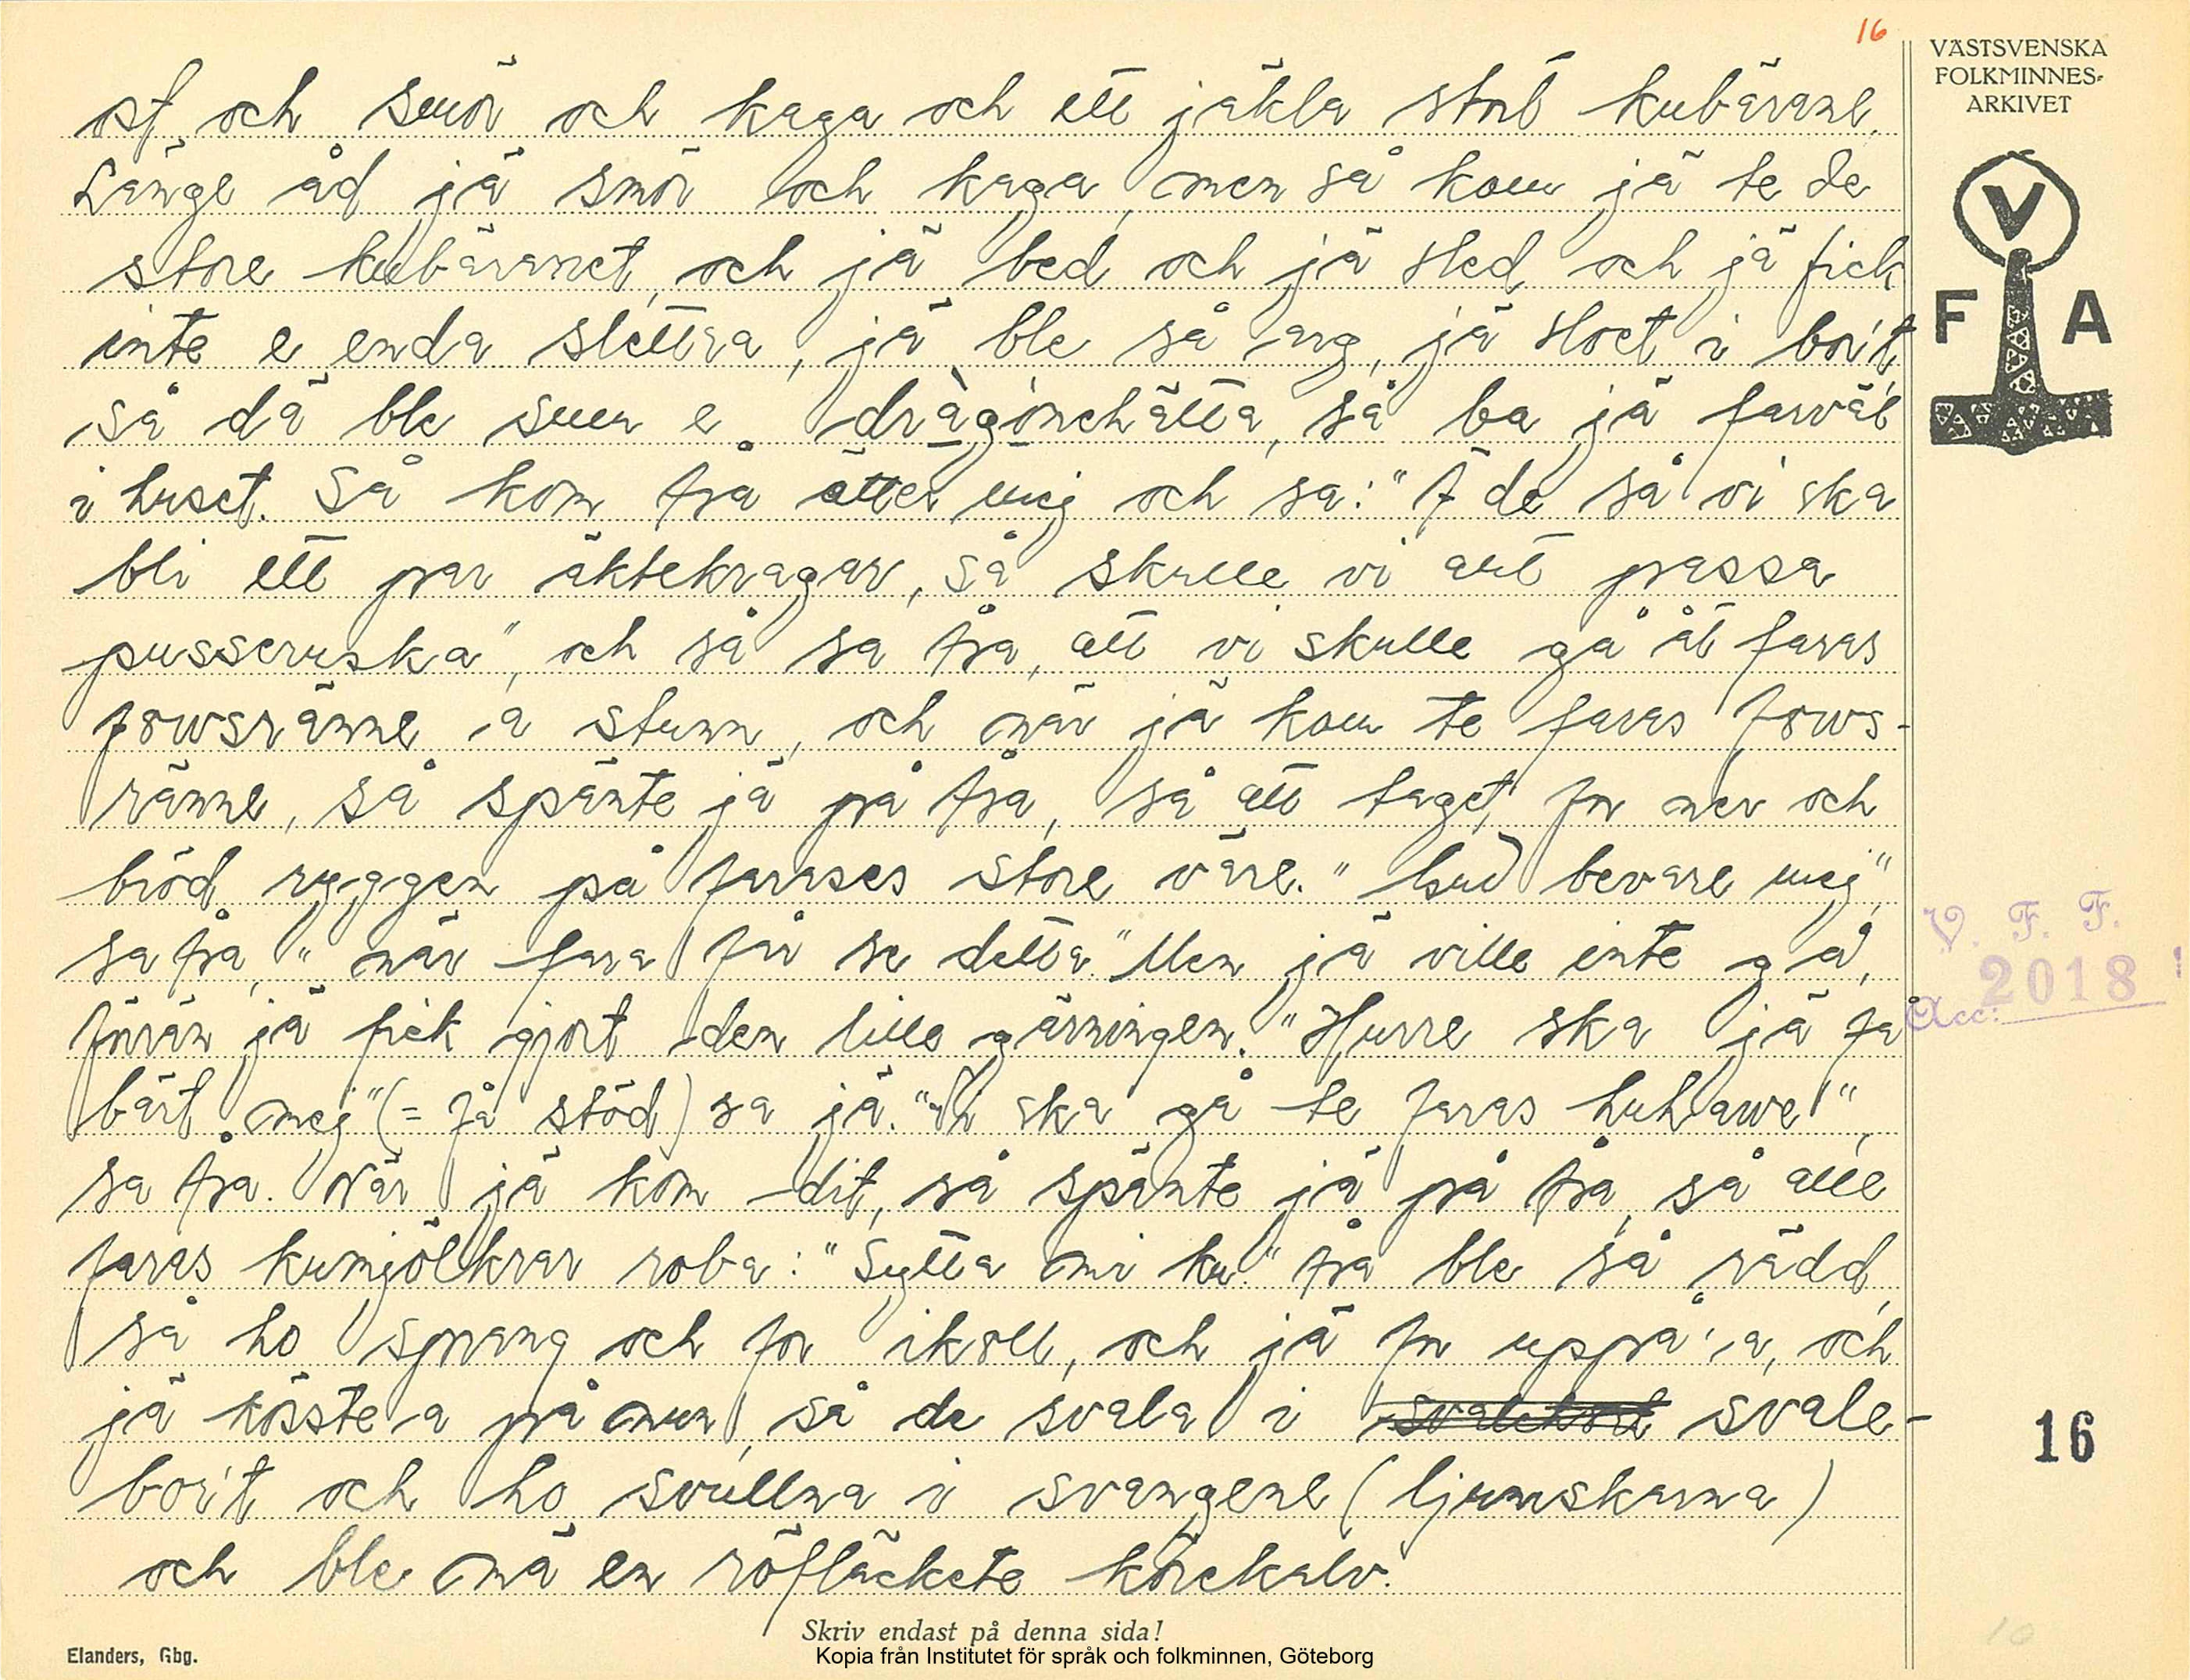 16
VÄSTSVENSKA
FOLKMINNES-
ARKIVET
ost och smör och kaga och ett jäkla stort kubärane.
Länge åd jä smör och kaga, men så kom jä te de
store kubäranet, och jä bed och jä sled och jä fick
inte e enda slettra, jä ble så arg, jä sloet i bor't,
så dä ble sum e dragonehätta, så ba jä farväl
i huset. Så kom frå ätter mej och sa: "Ä de så vi ska
bli ett par äktekragar, så skulle vi allt passa
pusseruska", och så sa fra, att vi skulle gå åt faras
fowsränne a stunn, och när jä kom te faras fows-
ränne, så spänte jä på frå, så att taget for ner och
bröd ryggen på farases store väre. "Gud bevare mej",
sa frå, "när fara får se detta." Men jä ville inte gå,
förrän jä fick gjort den lille gärningen. "Hurre ska jä få
bärt mej" (= få stöd) sa jä. "Vi ska gå te faras huhlawe!",
sa frå. När jä kom dit, så spänte jä på frå, så alle
faras kumjölkrar roba: "Sytta mi ku." frå ble så rädd,
så ho sprang och for ikoll, och jä for uppå 'a, och
jä kösste a på mun, så de svala i svale-
bor't och ho svullna i svangene (ljumskarna)
och ble mä en röfläckete körekalv.
V
F A
V. F. F.
Acc: 2018
16
Skriv endast på denna sida!
Elanders, Gbg.
Kopia från Institutet för språk och folkminnen, Göteborg